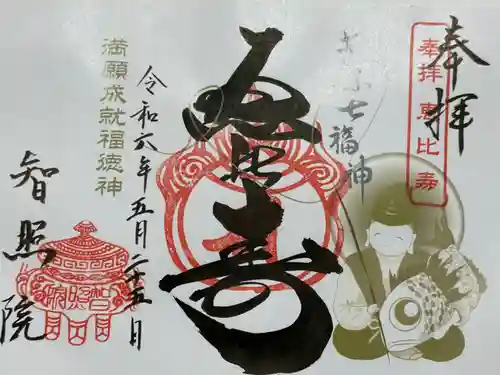 奉拝
奉拝 恵比寿
七福神
恵比寿
令和六年五月二十五日
満願成就福徳神
智照院